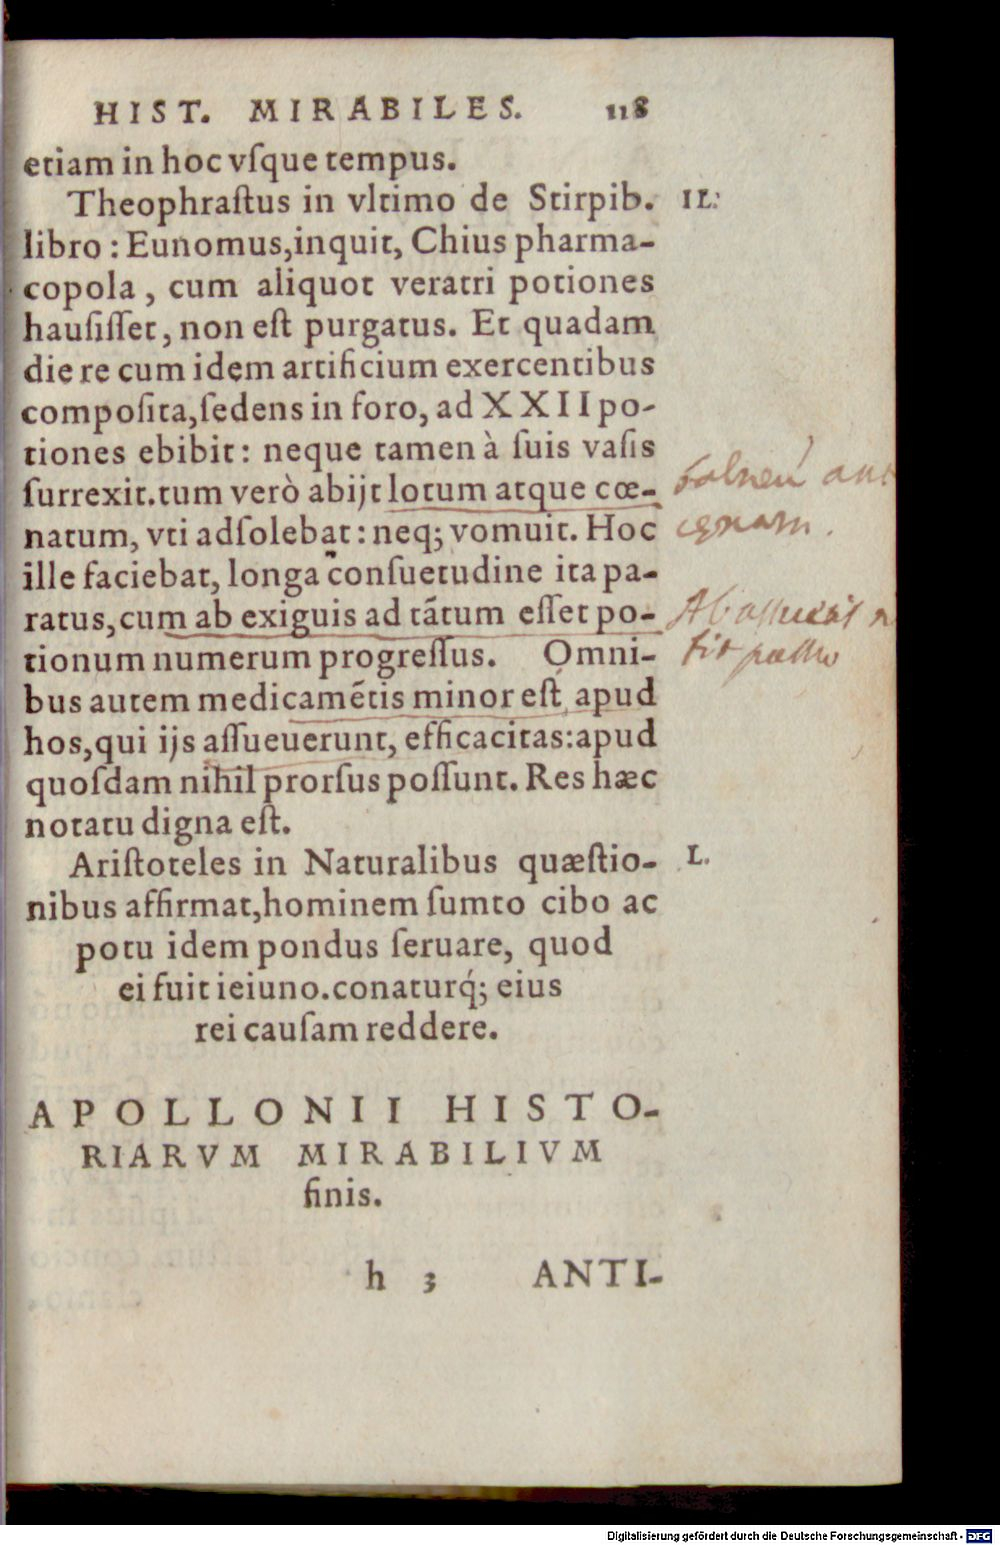 HIST. MIRABILES. 118
etiam in hoc vſque tempus.
Theophraſtus in vltimo de Stirpib. IL.
libro : Eunomus,inquit, Chius pharma-
copola , cum aliquot veratri potiones
hauſiſſet, non eſt purgatus. Et quadam
die re cum idem artificium exercentibus
compoſita,ſedens in foro, ad XXII po-
tiones ebibit: neque tamen à ſuis vaſis
ſurrexit.tum verò abijt lotum atque cœ-
natum, vti adſolebat: neq; vomuit. Hoc
ille faciebat, longa conſuetudine ita pa-
ratus,cum ab exiguis ad tãtum eſſet po-
tionum numerum progreſſus. Omni-
bus autem medicamẽtis minor eſt apud
hos,qui ijs aſſueuerunt, efficacitas:apud
quoſdam nihil prorſus poſſunt. Res hæc
notatu digna eſt.
Ariſtoteles in Naturalibus quæſtio- L.
nibus affirmat,hominem ſumto cibo ac
potu idem pondus ſeruare, quod
ei fuit ieiuno.conaturq́; eius
rei cauſam reddere.
APOLLONII HISTO-
RIARVM MIRABILIVM
finis.
h 3 ANTI-
balneũ ant
cęnam.
Ab
fit passio
Digitalisierung gefördert durch die Deutsche Forschungsgemeinschaft - DFG